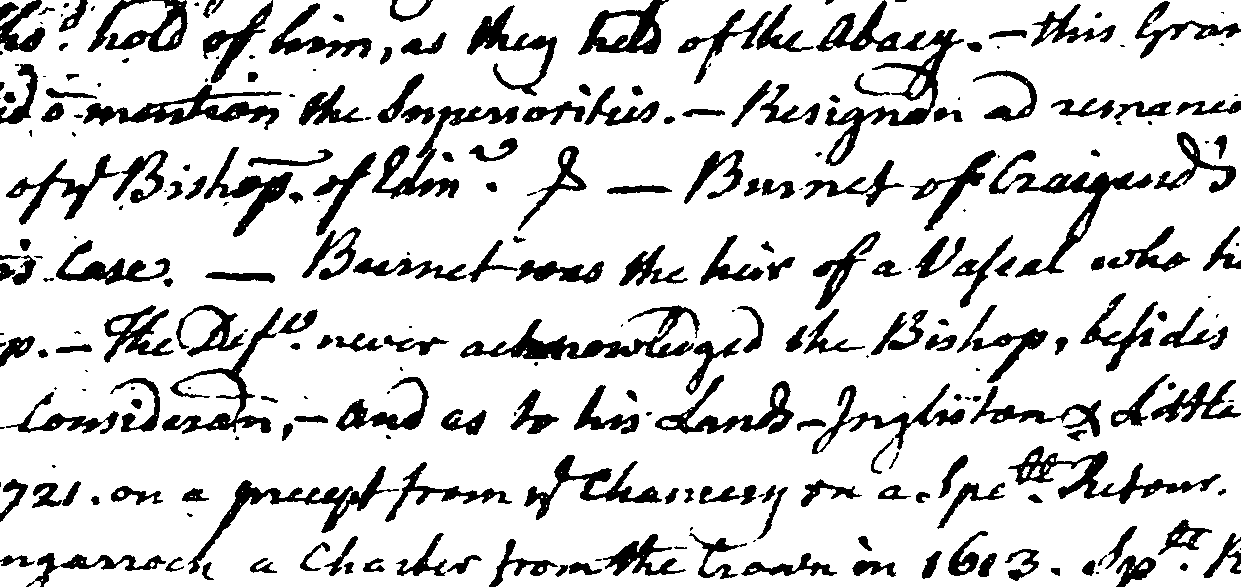 hold of him, as they held of the Abacy. - this Gran
id o mention the Superiorities. - Resignãon ad remanen
of yͤ Bishop. of Edinʳ. & — Burnet of Craigend's
is Case. — Burnet was the heir of a Vaſsal who h
p. - The Defʳ. never acknowledged the Bishop, beſides
Considerãon, - and as to his Lands - Ingliston & Little
1721. on a precept from yͤ Chancery on a Specˡˡ. Retour.
ngarroch a Charter from the Crown in 1613. Spˡˡ. R